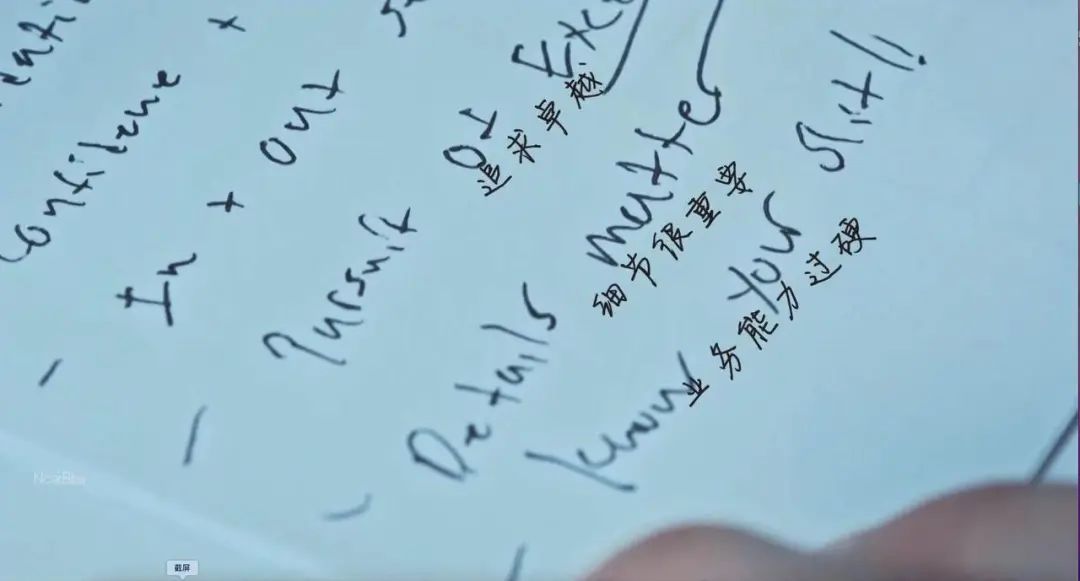 Confidence +
- In + Out
- Pursuit Of
追求卓越
- Details matter
细节很重要
Know Your Shit!!
业务能力过硬
截屏